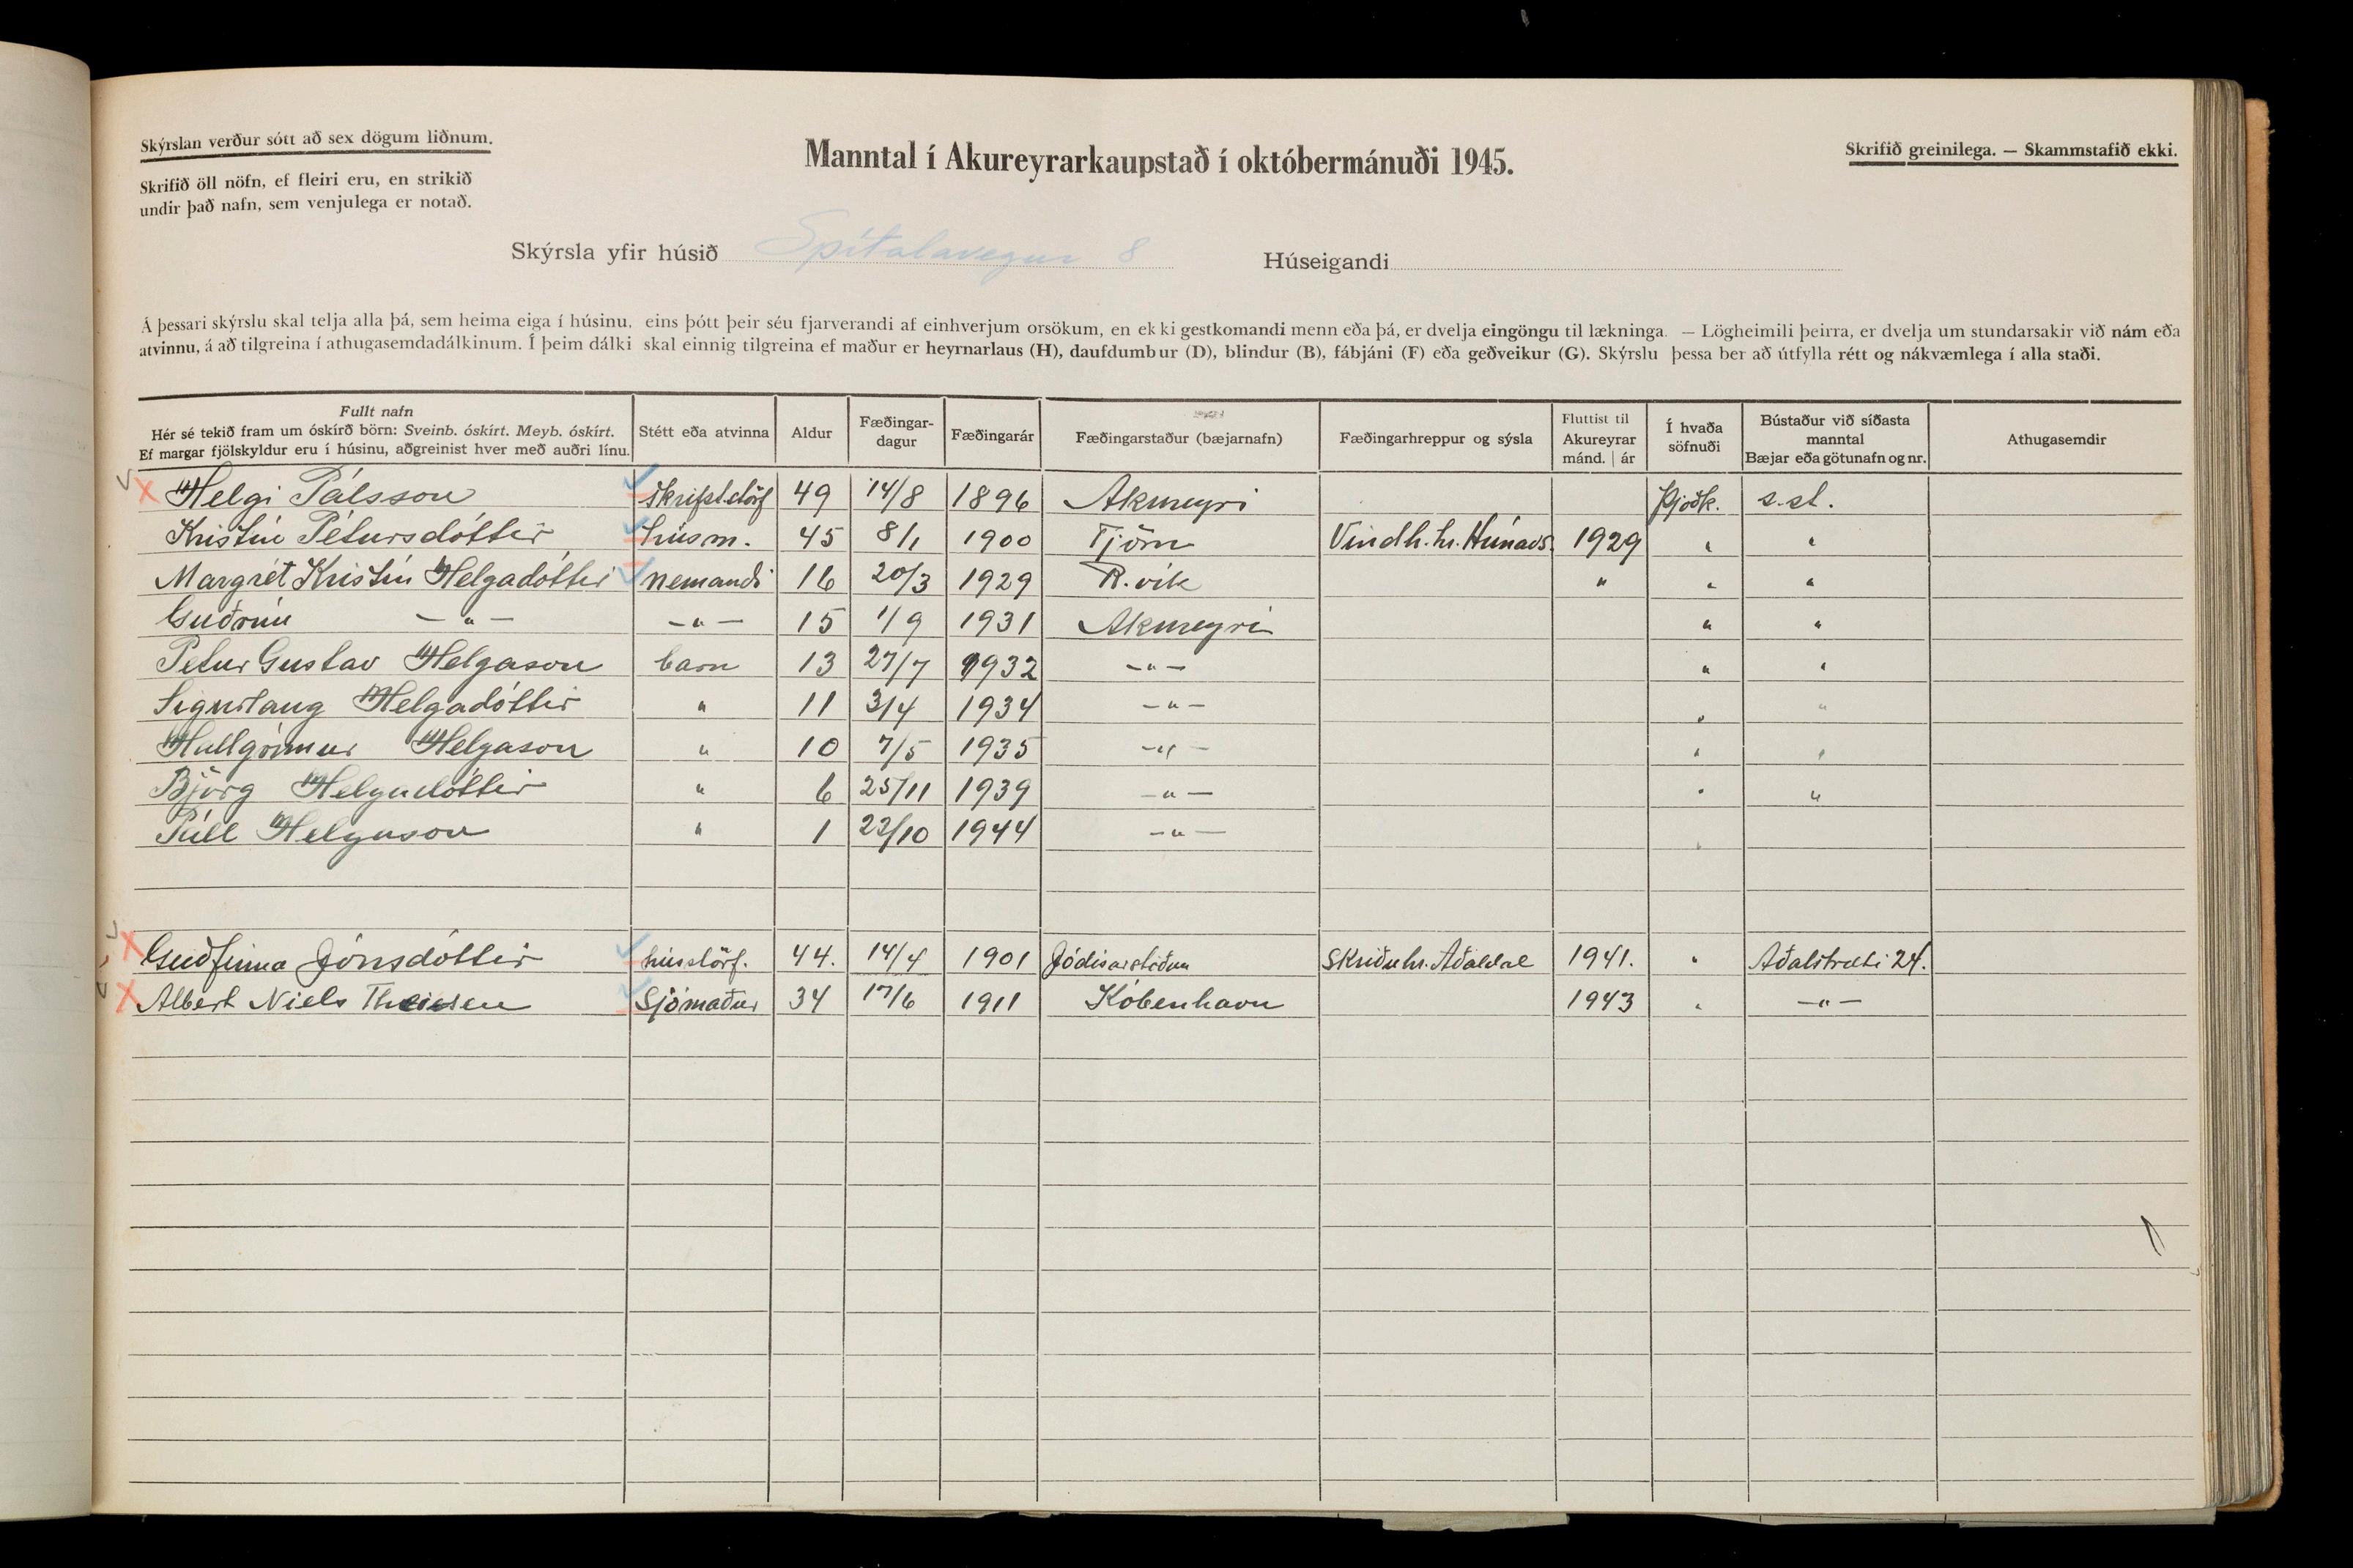 Skýrslan verður sótt að sex dögum liðnum.
Skrifið öll nöfn, ef fleiri eru, en strikið
undir það nafn, sem venjulega er notað.
Manntal í Akureyrarkaupstað í októbermánuði 1945.
Skrifið greinilega. — Skammstafið ekki.
Skýrsla yfir húsið Spítalavegur 8 Húseigandi
Á þessari skýrslu skal telja alla þá, sem heima eiga í húsinu, eins þótt þeir séu fjarverandi af einhverjum orsökum, en ekki gestkomandi menn eða þá, er dvelja eingöngu til lækninga. — Lögheimili þeirra, er dvelja um stundarsakir við nám eða
atvinnu, á að tilgreina í athugasemdadálkinum. Í þeim dálki skal einnig tilgreina ef maður er heyrnarlaus (H), daufdumbur (D), blindur (B), fábjáni (F) eða geðveikur (G). Skýrslu þessa ber að útfylla rétt og nákvæmlega í alla staði.
Fullt nafn
Hér sé tekið fram um óskírð börn: Sveinb. óskírt. Meyb. óskírt.
Ef margar fjölskyldur eru í húsinu, aðgreinist hver með auðri línu.
Stétt eða atvinna
Aldur
Fæðingar-
dagur
Fæðingarár
Fæðingarstaður (bæjarnafn)
Fæðingarhreppur og sýsla
Fluttist til
Akureyrar
mánd. | ár
Í hvaða
söfnuði
Bústaður við síðasta
manntal
Bæjar eða götunafn og nr.
Athugasemdir
Helgi Pálsson skrifststörf 49 14/8 1896 Akureyri Þjóðk. s.st.
Kristín Pétursdóttir húsm. 45 8/1 1900 Tjörn Vindh.hr. Húnavs. 1929 " "
Margrét Kristín Helgadóttir nemandi 16 20/3 1929 R.vík " " "
Guðrún — " — — " — 15 1/9 1931 Akureyri " "
Petur Gustav Helgason barn 13 27/7 1932 — " — " "
Sigurlaug Helgadóttir " 11 3/4 1934 — " — " "
Hallgrímur Helgason " 10 7/5 1935 — " — " "
Björg Helgadóttir " 6 25/11 1939 — " — " "
Páll Helgason " 1 23/10 1944 — " — "
Guðfinna Jónsdóttir hússtörf. 44. 14/4 1901 Jódísarstöðum Skriðuhr. Aðaldal 1941. " Aðalstræti 24.
Albert Niels Sjómaður 34 17/6 1911 Köbenhavn 1943 " — " —